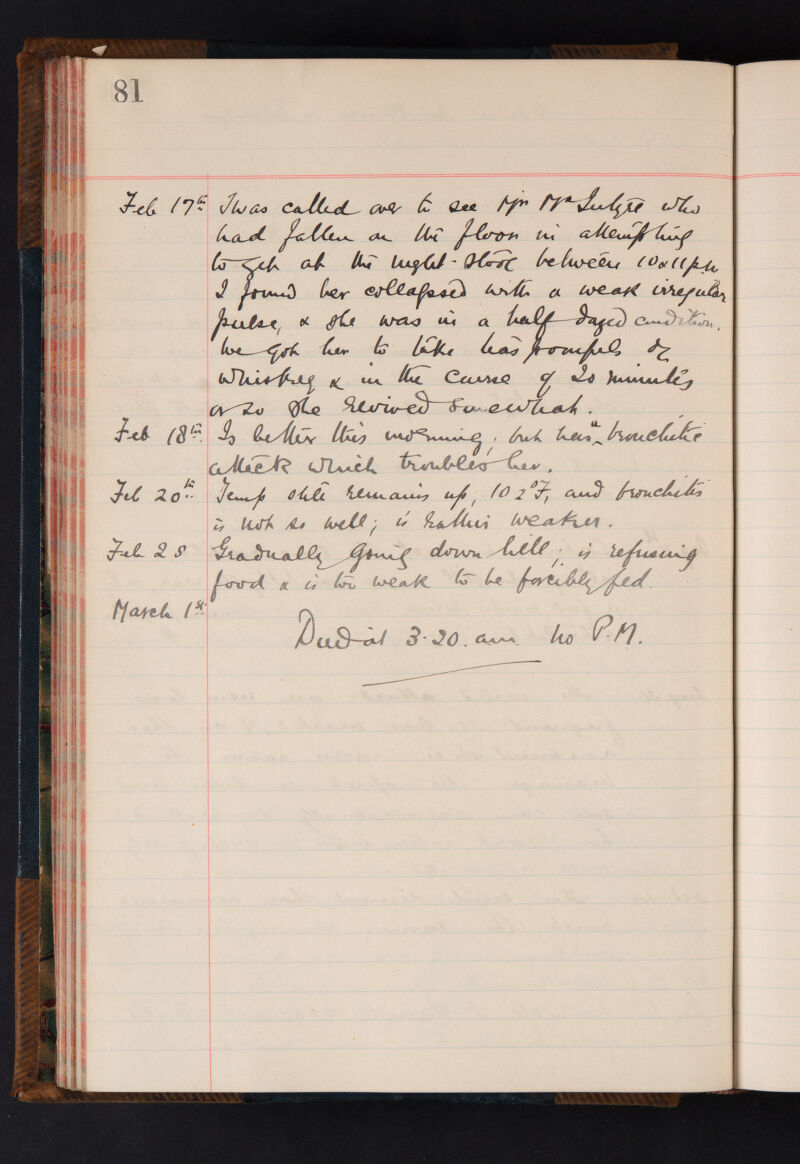 81
Feb 17th I was called over to see Mrs McIntyre who
had fallen on the floor in attempting
to get at the night-stool between 10 & 11 p.m
I found her collapsed with a weak irregular
pulse, & she was in a half dazed condition.
We got her to take teaspoonfuls of
whiskey & in the course of 20 minutes
or so she revived somewhat.
Feb 18th Is better this morning, but has a bronchitic
attack which troubles her.
Feb 20th Temp still remains up, 102°F, and bronchitis
is not so well; is rather weaker.
Feb 28 Gradually going down hill; is refusing
food & is too weak to be forcibly fed.
March 1st
Died at 3.20. am. No P.M.